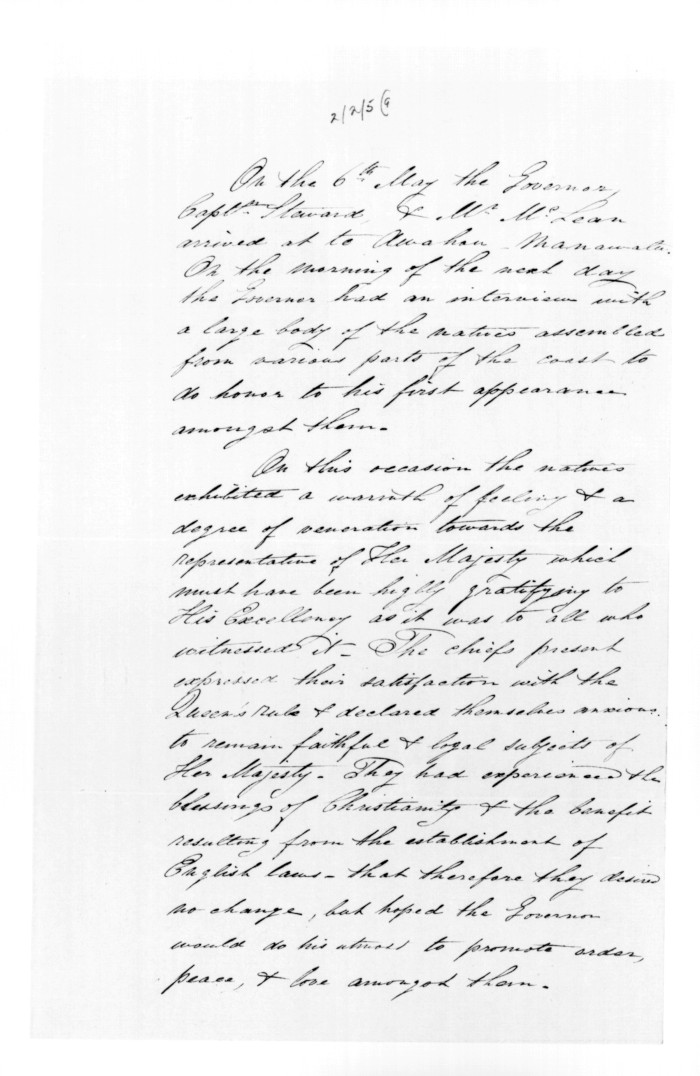 2/2/5 (9
On the 6th May the Governor,
Captn. Steward, & Mr. McLean
arrived at te Awahou Manawatu.
On the morning of the next day
the Governor had an interview with
a large body of the natives assembled
from various parts of the coast to
do honor to his first appearance
amongst them.
On this occasion the natives
exhibited a warmth of feeling & a
degree of veneration towards the
representative of Her Majesty which
must have been highly gratifying to
His Excellency as it was to all who
witnessed it - The chiefs present
expressed their satisfaction with the
Queen's rule & declared themselves anxious
to remain faithful & loyal subjects of
Her Majesty - They had experienced the
blessings of Christianity & the benefit
resulting from the establishment of
English laws - that therefore they desired
no change, but hoped the Governor
would do his utmost to promote order,
peace, & love amongst them -